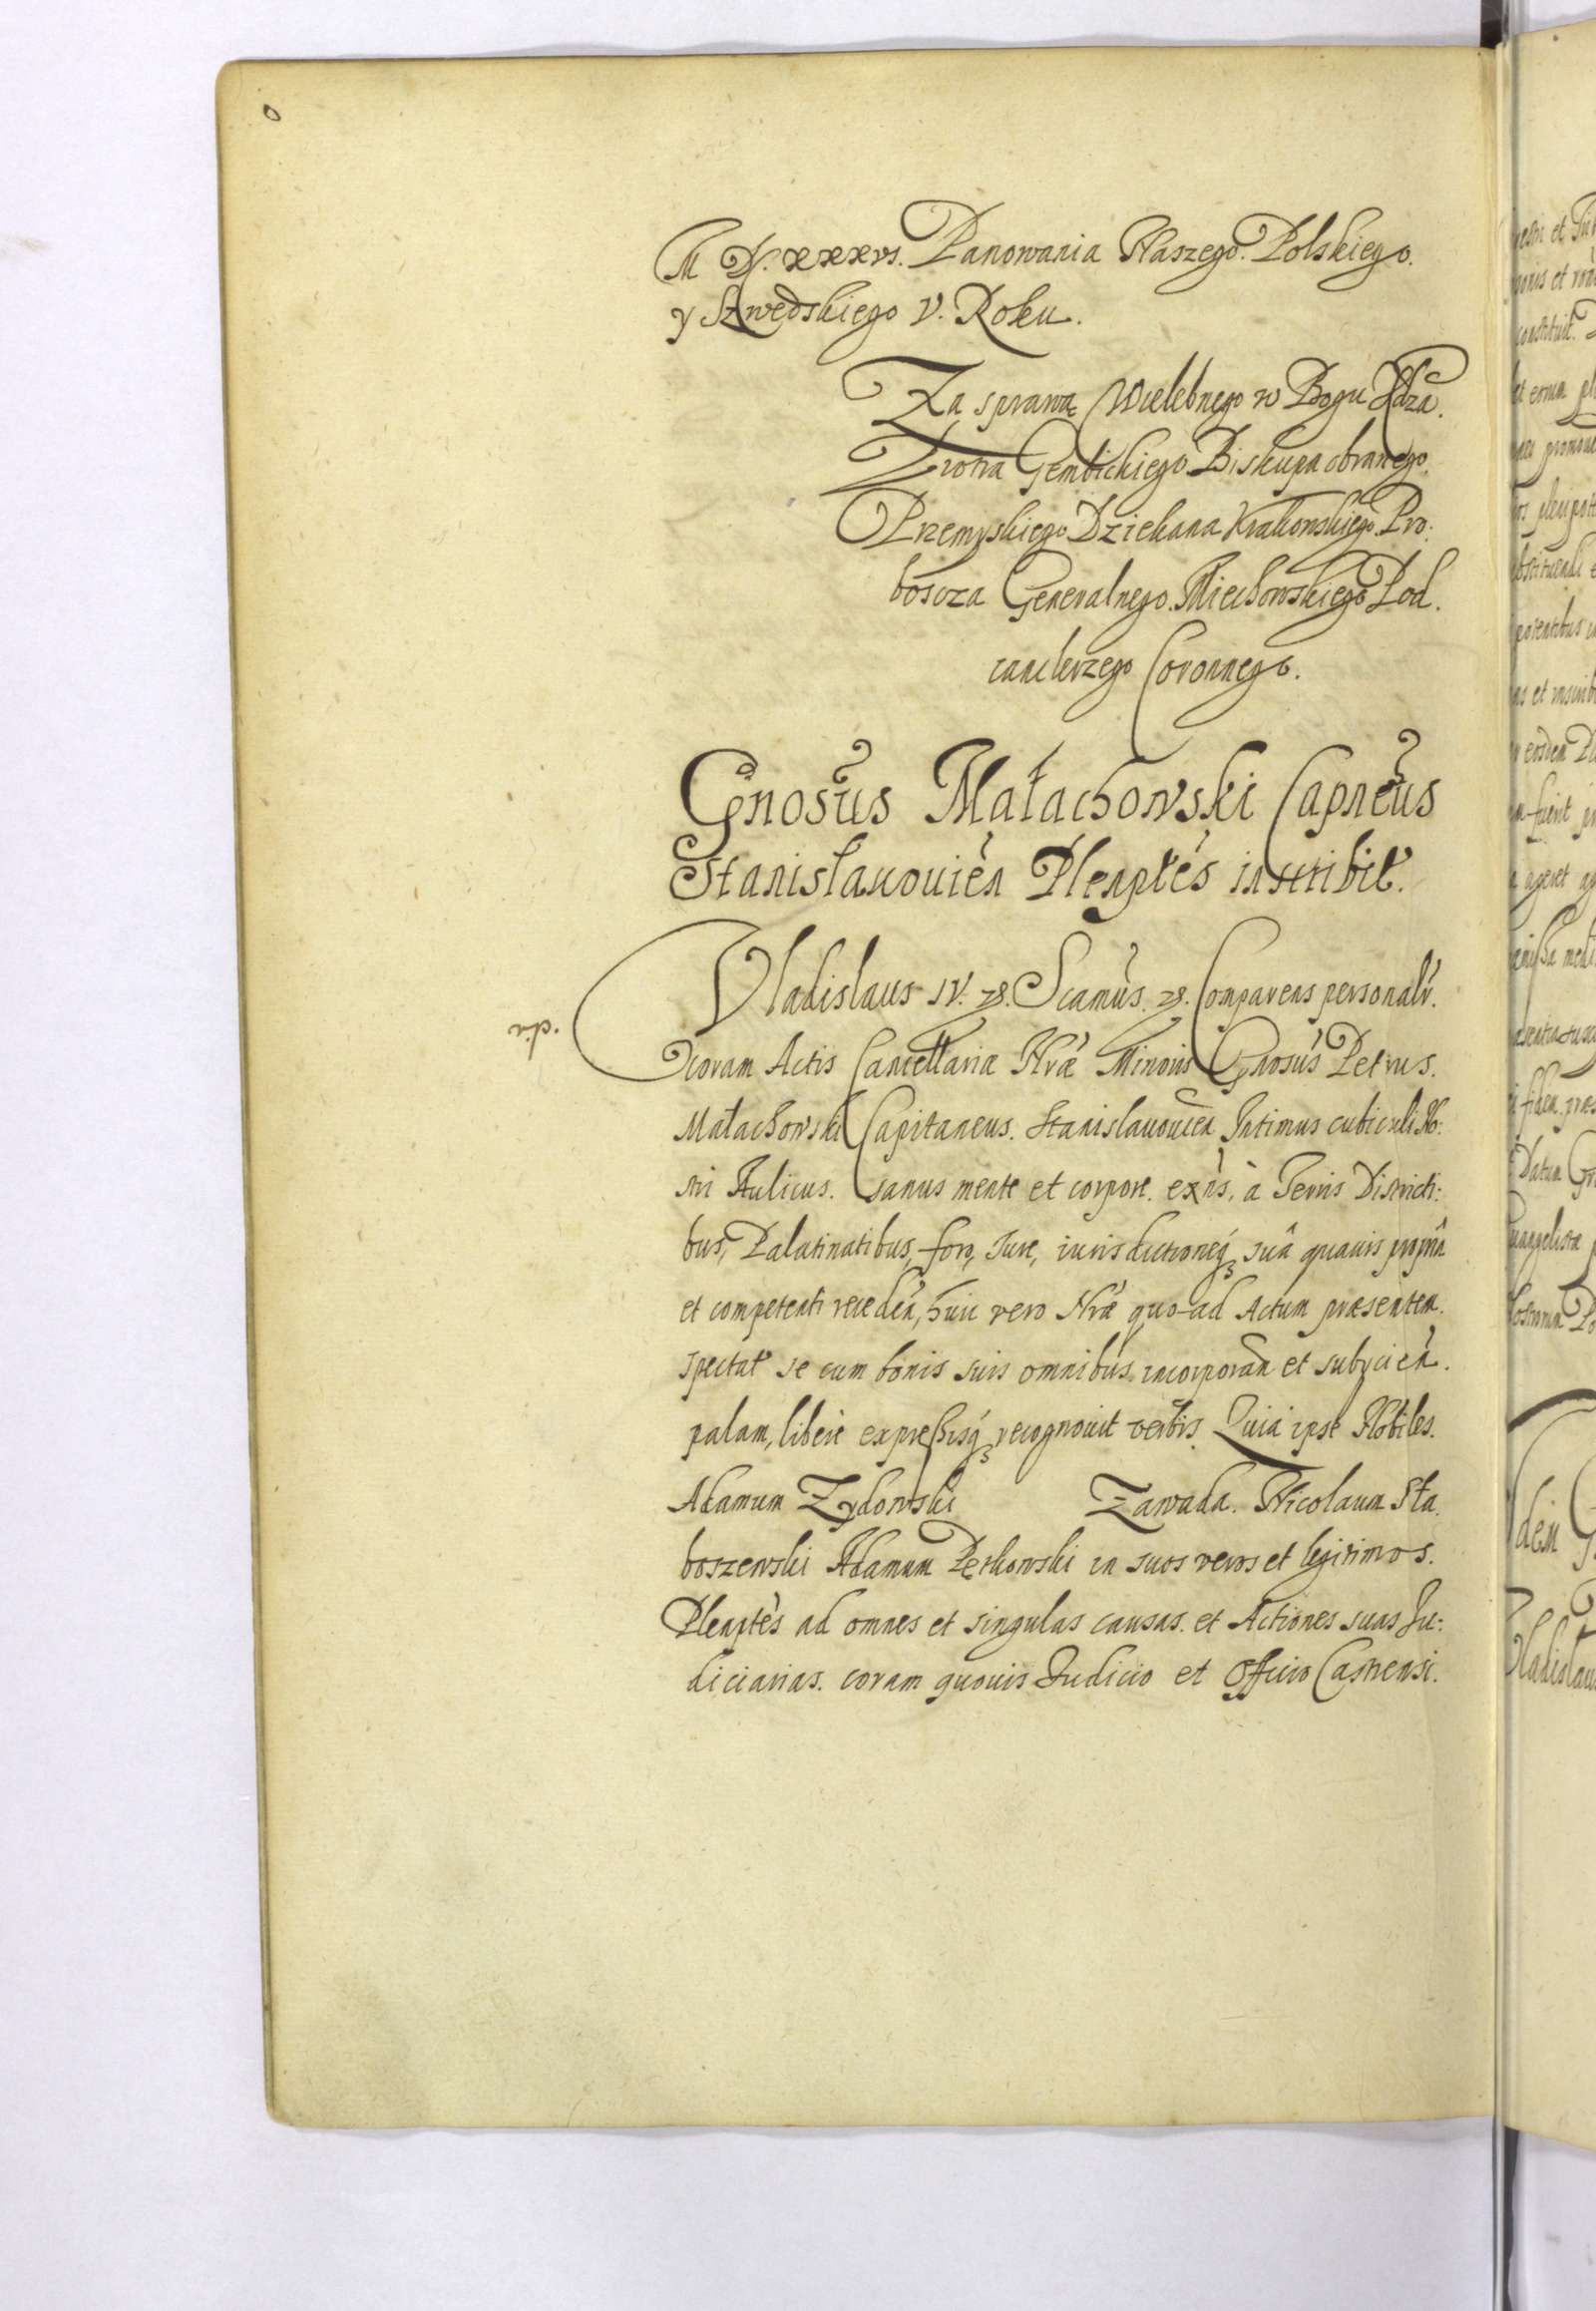 M D. XXXVI. Panowania Naszego. Polskiego.
y Szwedskiego V. Roku.
Za sprawą Wielebnego w Bogu Xdza.
Piotra Gembickiego Biskupa obranego
Przemyskiego Dziekana Krakowskiego Pro:
boscza Generalnego. Miechowskiego Pod.
canclerzego Coronnego.
Gnosus Małachowski Capneus
Stanisłauouien Plenptes inscribit.
Vladislaus IV. Scamus. Comparens personalr.
coram Actis Cancellariæ Nræ Minoris Gnosus Petrus.
Małachowski Capitaneus. Stanislauouien Intimus cubiculi No:
stri Aulicus. sanus mente et corpore. exns, à Terris Districti:
bus, Palatinatibus, foro, Iure, iurisdictioneq suâ quauis propria
et competenti receden, huic vero Nræ quo-ad Actum præsentem.
spectat se cum bonis suis omnibus incorporan et subycien.
palam, liberè expressisq recognouit verbis. Quia ipse Nobiles.
Adamum Zydowski Zawada. Nicolaum Sła
boszewski Adamum Pękowski in suos veros et legitimos.
Plenptes ad omnes et singulas causas. et Actiones suas Iu:
diciarias. coram quouis Iudicio et Officio Castrensi.